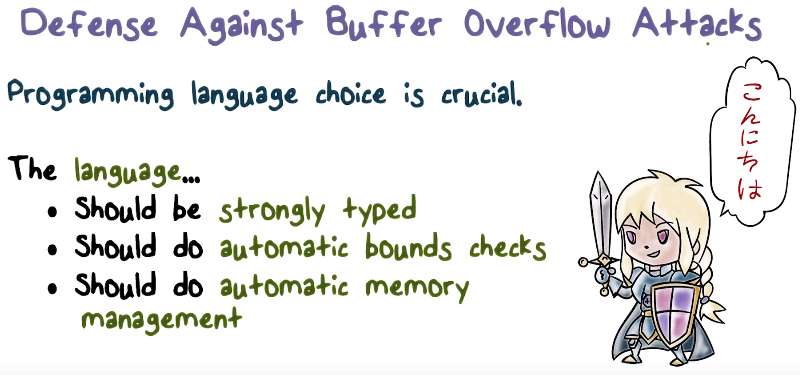 Defense Against Buffer Overflow Attacks
Programming language choice is crucial.
The language...
• Should be strongly typed
• Should do automatic bounds checks
• Should do automatic memory
management
こんにちは